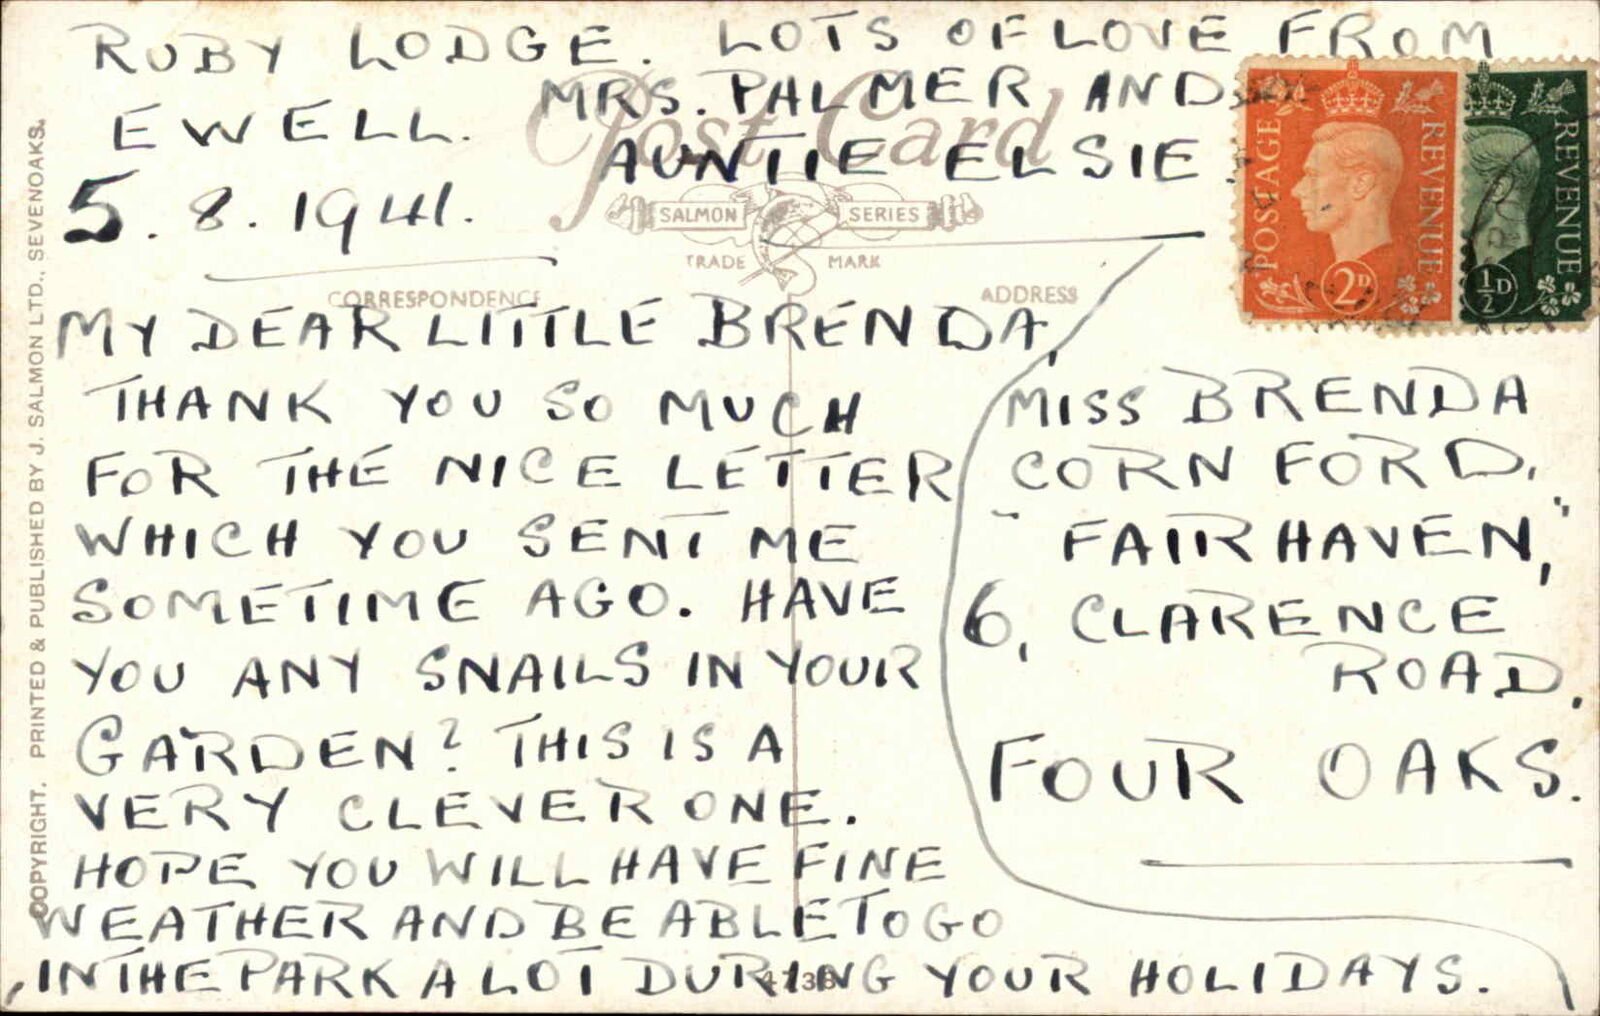 RUBY LODGE.
EWELL.
5.8.1941.
MY DEAR LITTLE BRENDA,
THANK YOU SO MUCH
FOR THE NICE LETTER
WHICH YOU SENT ME
SOMETIME AGO. HAVE
YOU ANY SNAILS IN YOUR
GARDEN? THIS IS A
VERY CLEVER ONE.
HOPE YOU WILL HAVE FINE
WEATHER AND BE ABLE TO GO
IN THE PARK A LOT DURING YOUR HOLIDAYS.
LOTS OF LOVE FROM
MRS. PALMER AND
AUNTIE ELSIE
MISS BRENDA
CORNFORD.
"FAIRHAVEN,"
6, CLARENCE
ROAD.
FOUR OAKS.
Post Card
SALMON SERIES
TRADE MARK
CORRESPONDENCE
ADDRESS
COPYRIGHT. PRINTED & PUBLISHED BY J. SALMON LTD., SEVENOAKS.
POSTAGE REVENUE
2D
REVENUE
½D